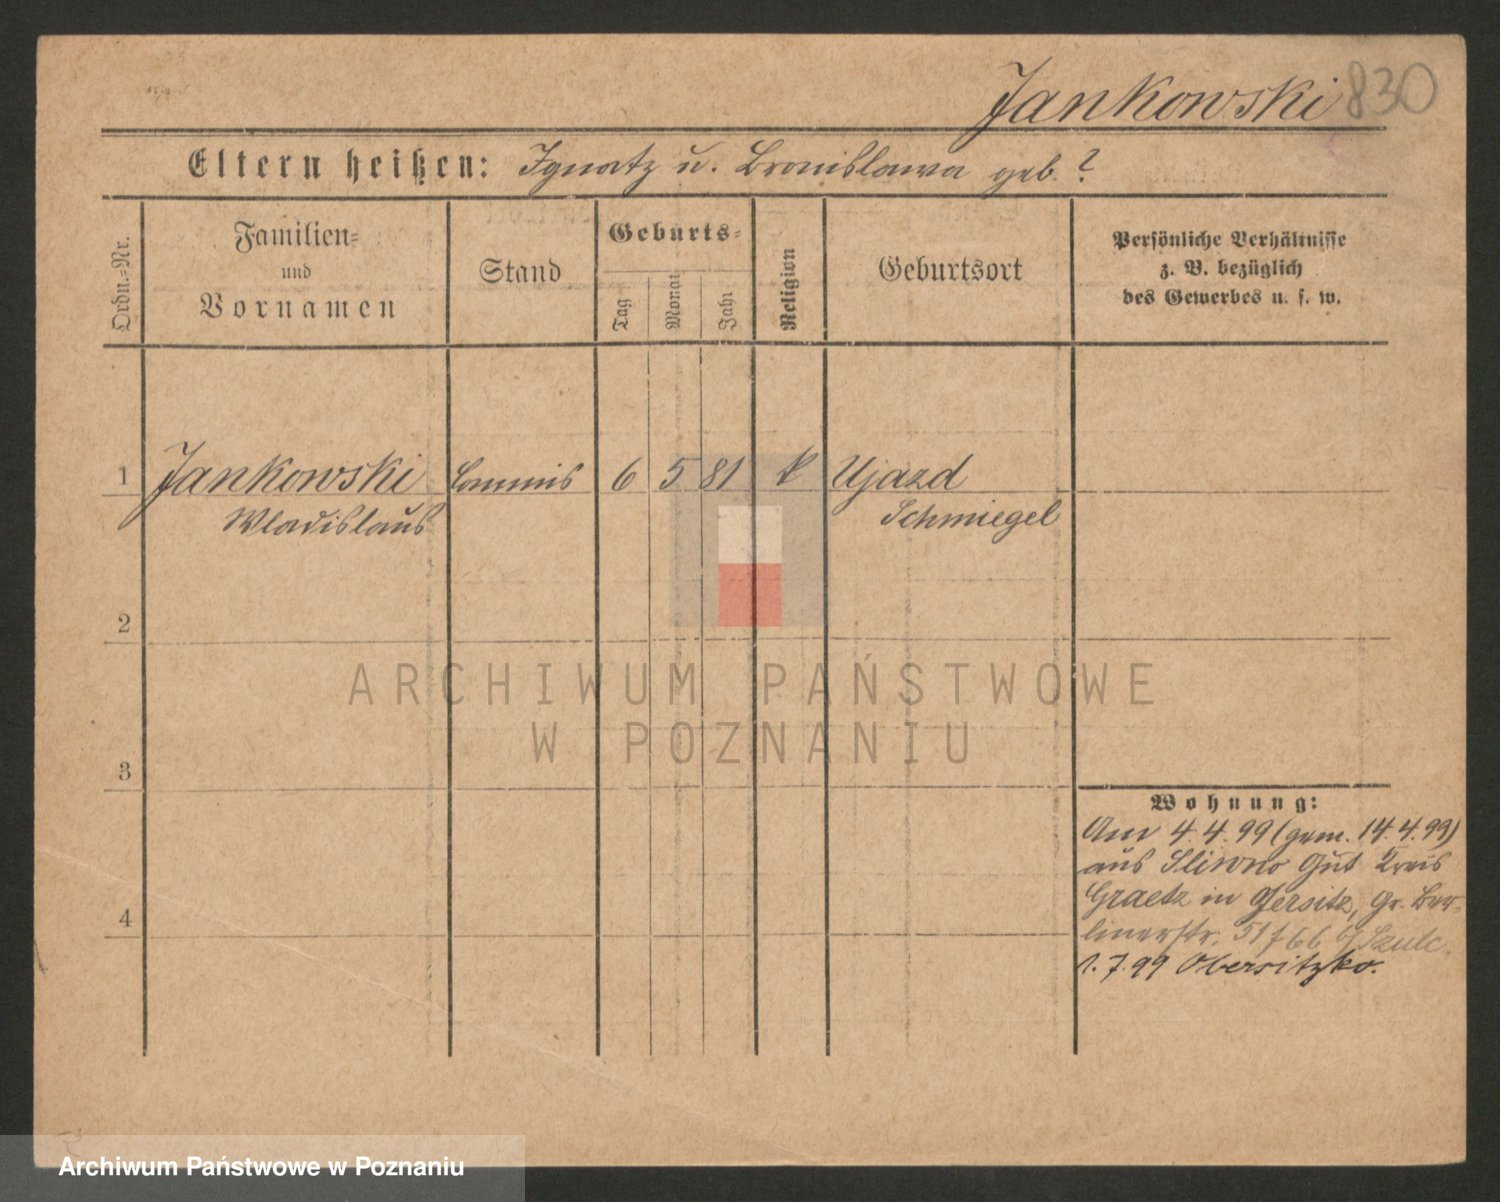 Jankowski 830
Eltern heißen: Ignatz u. Bronislawa geb. ?
Ordn.-Nr.
Familien-
und
Vornamen
Stand
Geburts-
Tag
Monat
Jahr
Religion
Geburtsort
Persönliche Verhältnisse
z. B. bezüglich
des Gewerbes u. s. w.
1 Jankowski Commis 6 5 81 k Ujazd
Wladislaus Schmiegel
2
ARCHIWUM PAŃSTWOWE
W POZNANIU
3
Wohnung:
Am 4.4.99 (gem. 14.4.99)
aus Sliwno Gut Kreis
Graetz in Jersitz, Gr. Ber-
4
linerstr. 51 Szulc.
1.7.99 Obersitzko.
Archiwum Państwowe w Poznaniu